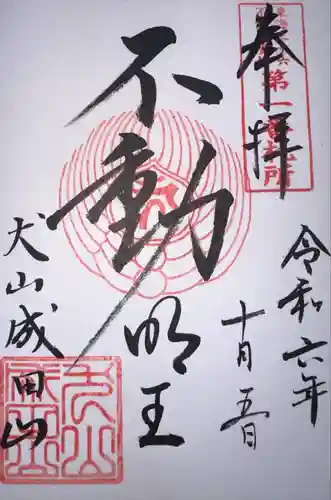 奉拝
第一番札所
令和六年
十月五日
不動明王
犬山成田山